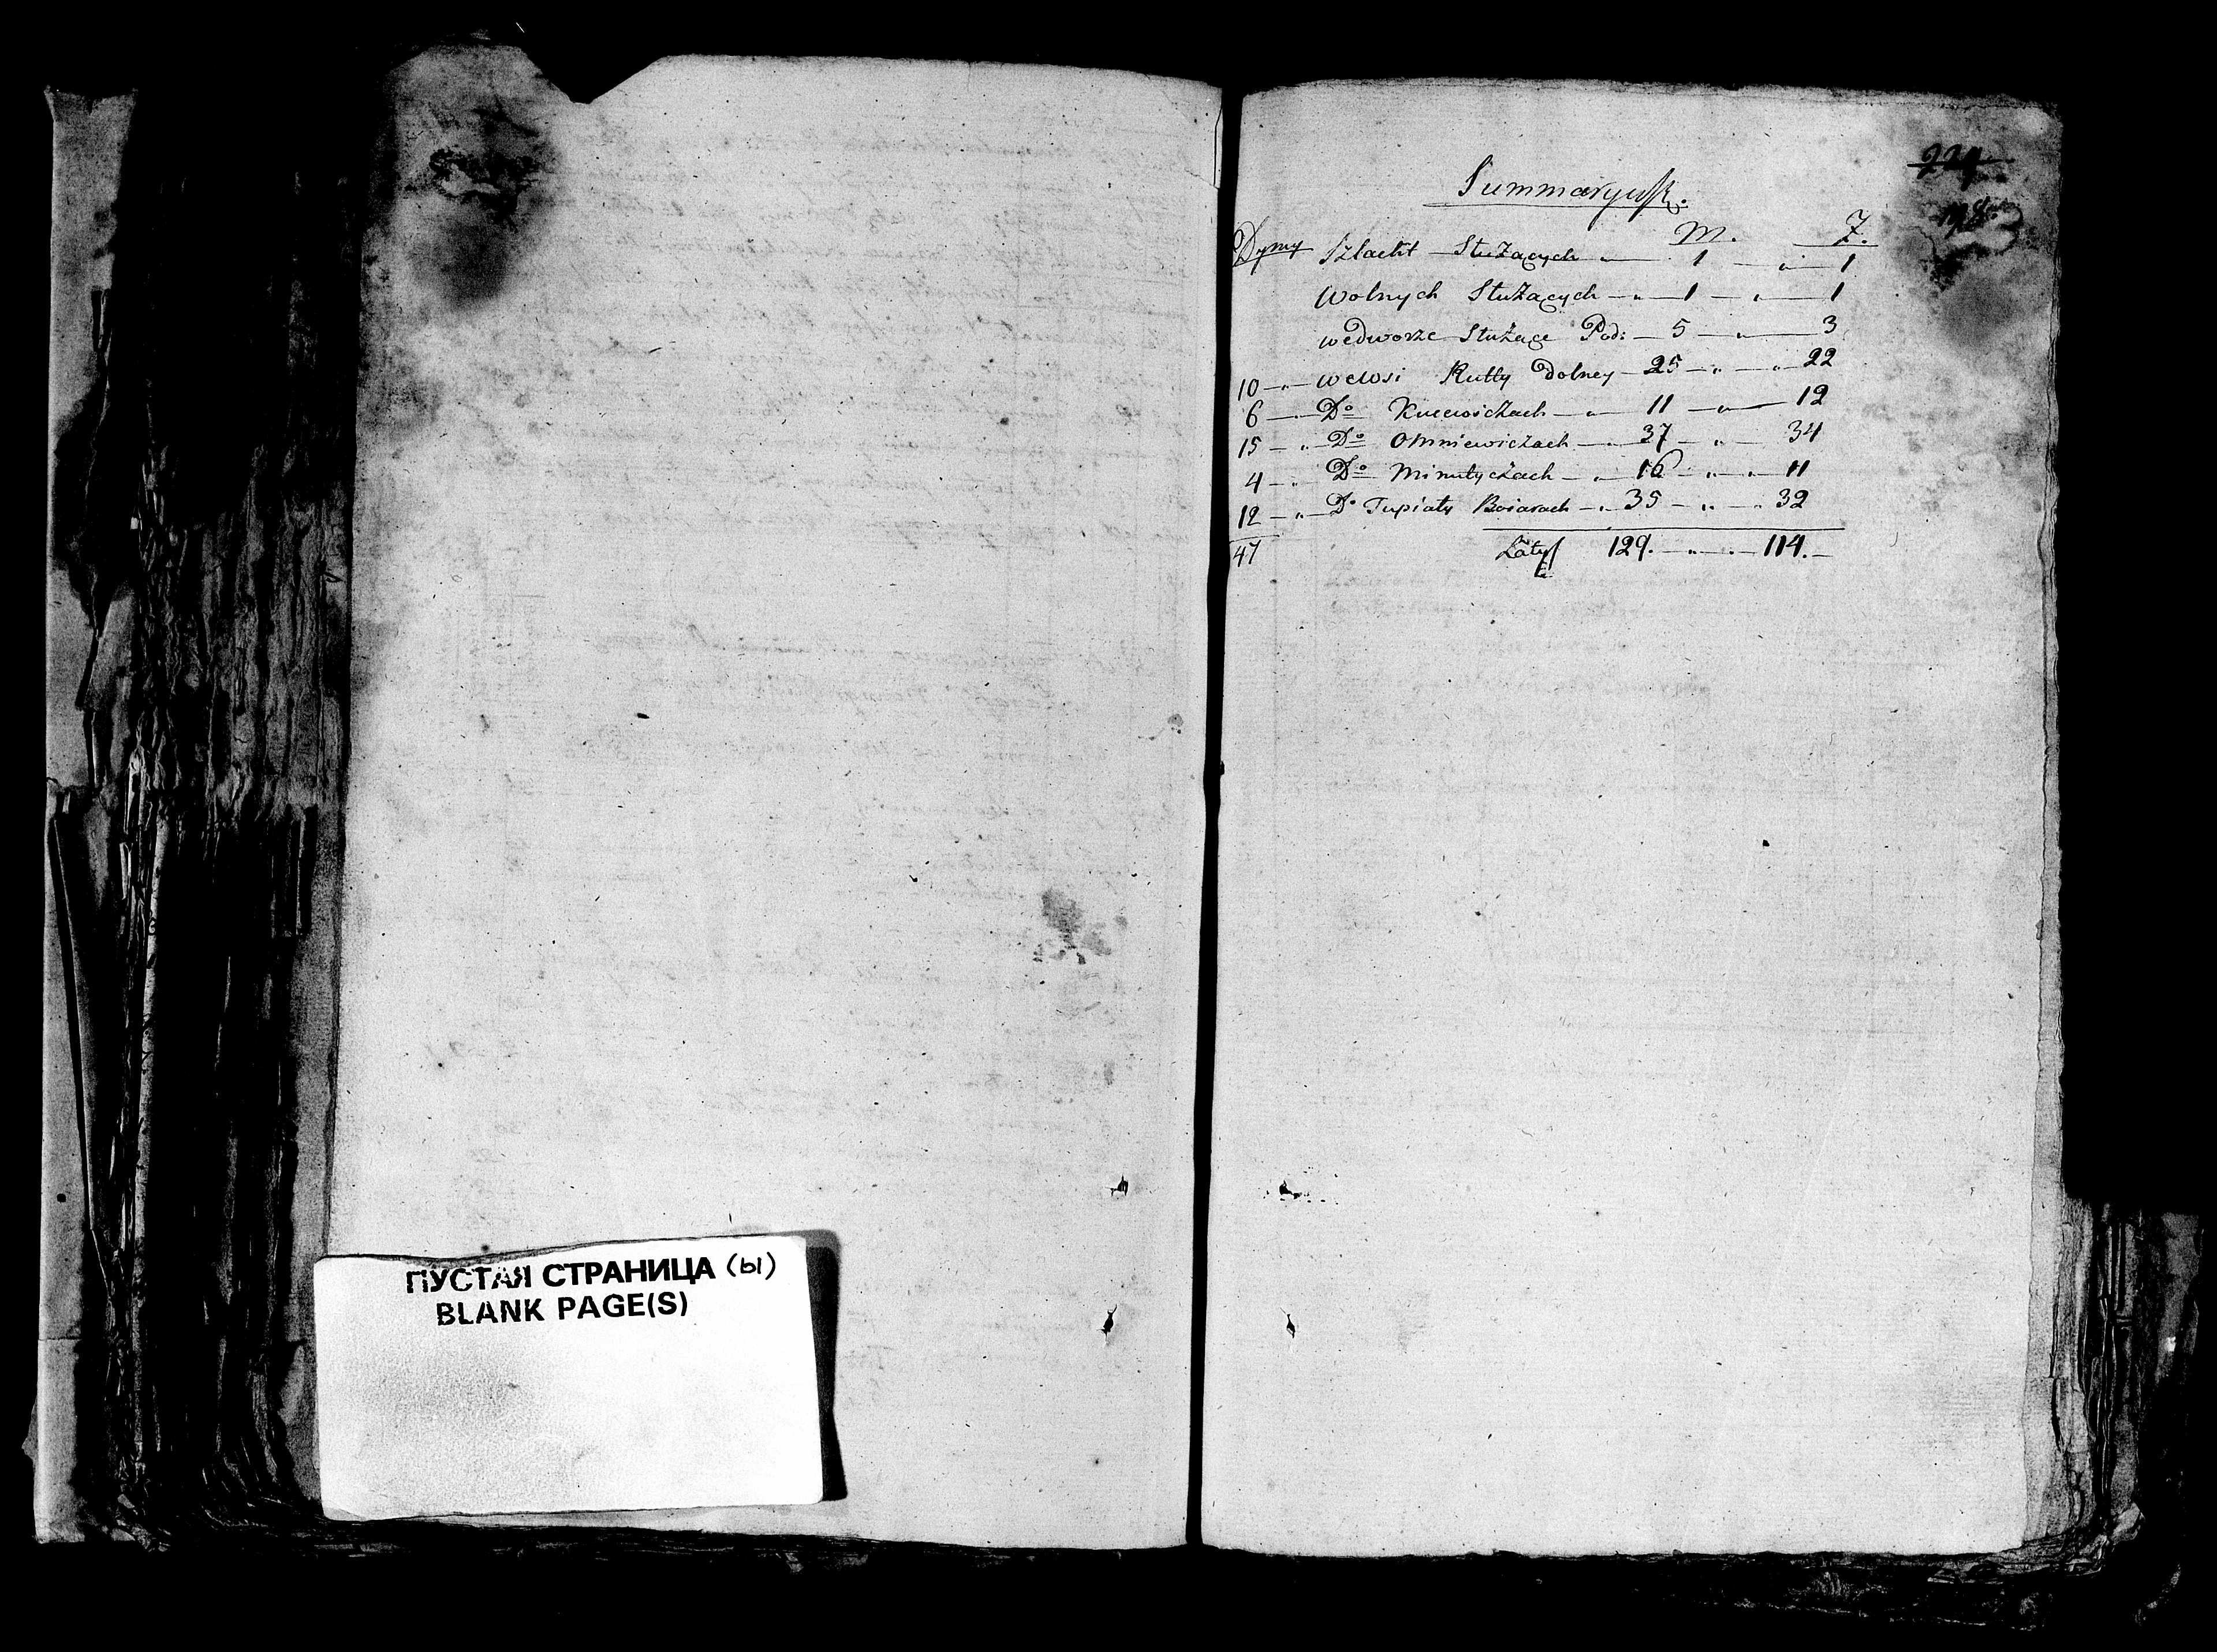 ПУСТАЯ СТРАНИЦА (Ы)
BLANK PAGE(S)
224
Summaryusz.
Dymy M. Z.
Szlacht Służących — " — 1 — " — 1
Wolnych Służących — " — 1 — " — 1
wedworze Służące Pod: — 5 — " — 3
10 — " — wewsi Rutty Dolney — 25 — " — " 22
6 — " — Do Kucewiczach — " — 11 — " — 12
15 — " — Do Omniewiczach — " — 37 — " — 34
4 — " — Do Minutyczach — " — 16 — " — " — 11
12 — " — Do Tupiały Boiarach — " — 35 — " — " 32
47 129. — " — " — 114. —